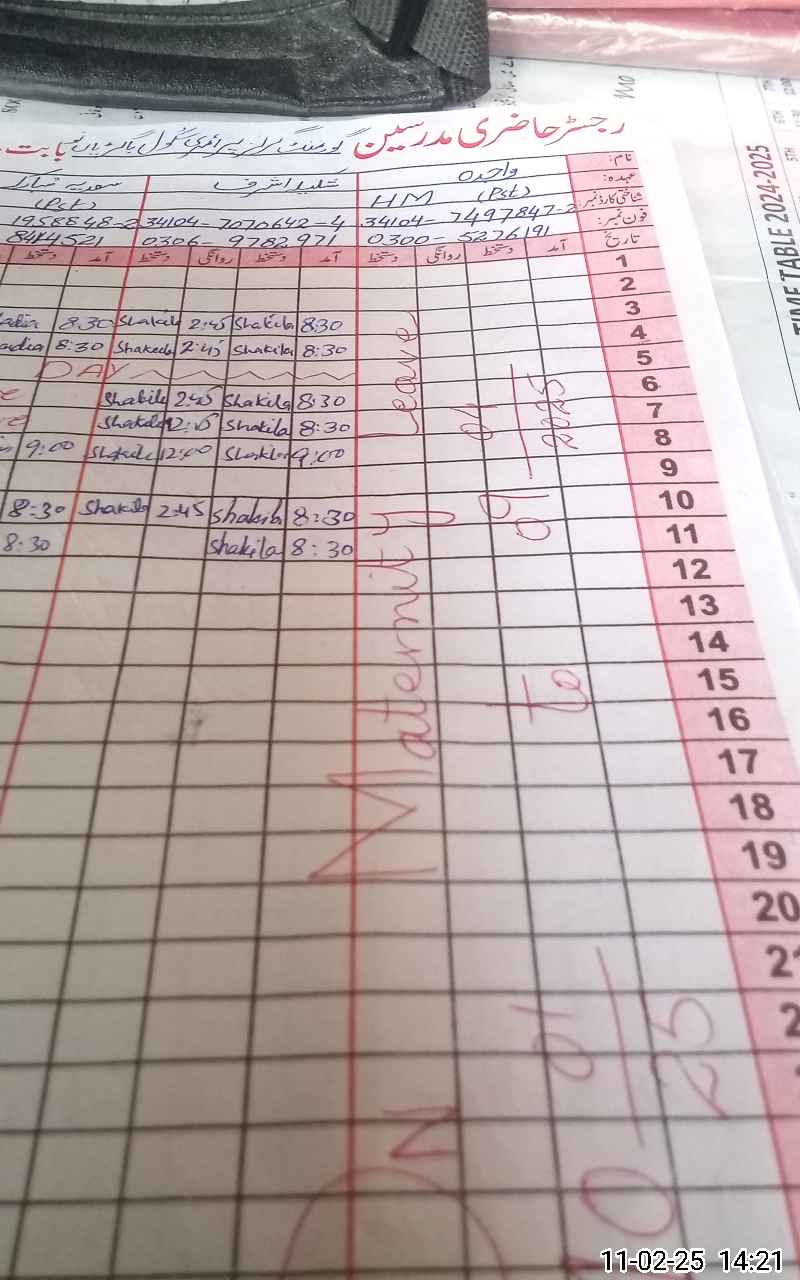 رجسٹر حاضری مدرسین گورنمنٹ گرلز پرائمری سکول بابت
نام: واحدہ شکیلہ اشرف سعدیہ
عہدہ: HM (Pst) (Pst)
شناختی کارڈ نمبر: 34104- 7497847-2 34104- 7070642-4 1958848-2
فون نمبر: 0300- 5276191 0306- 9782971 8414521
تاریخ آمد دستخط روانگی دستخط آمد دستخط روانگی دستخط آمد دستخط
1
2
3
4 8:30 Shakila 2:45 Shakila 8:30
5 8:30 Shakila 2:45 Shakila 8:30
DAY
6 8:30 Shakila 2:45 Shakila
7 8:30 Shakila 12:15 Shakila
8 9:00 Shakila 12:00 Shakila 9:00
9
10 8:30 Shakila 2:45 Shakila 8:30
11 8:30 Shakila 8:30
12
13
14
15
16
17
18
19
20
Maternity Leave
ON
09
01
2025
to
01
25
TIME TABLE 2024-2025
5TH
11-02-25 14:21